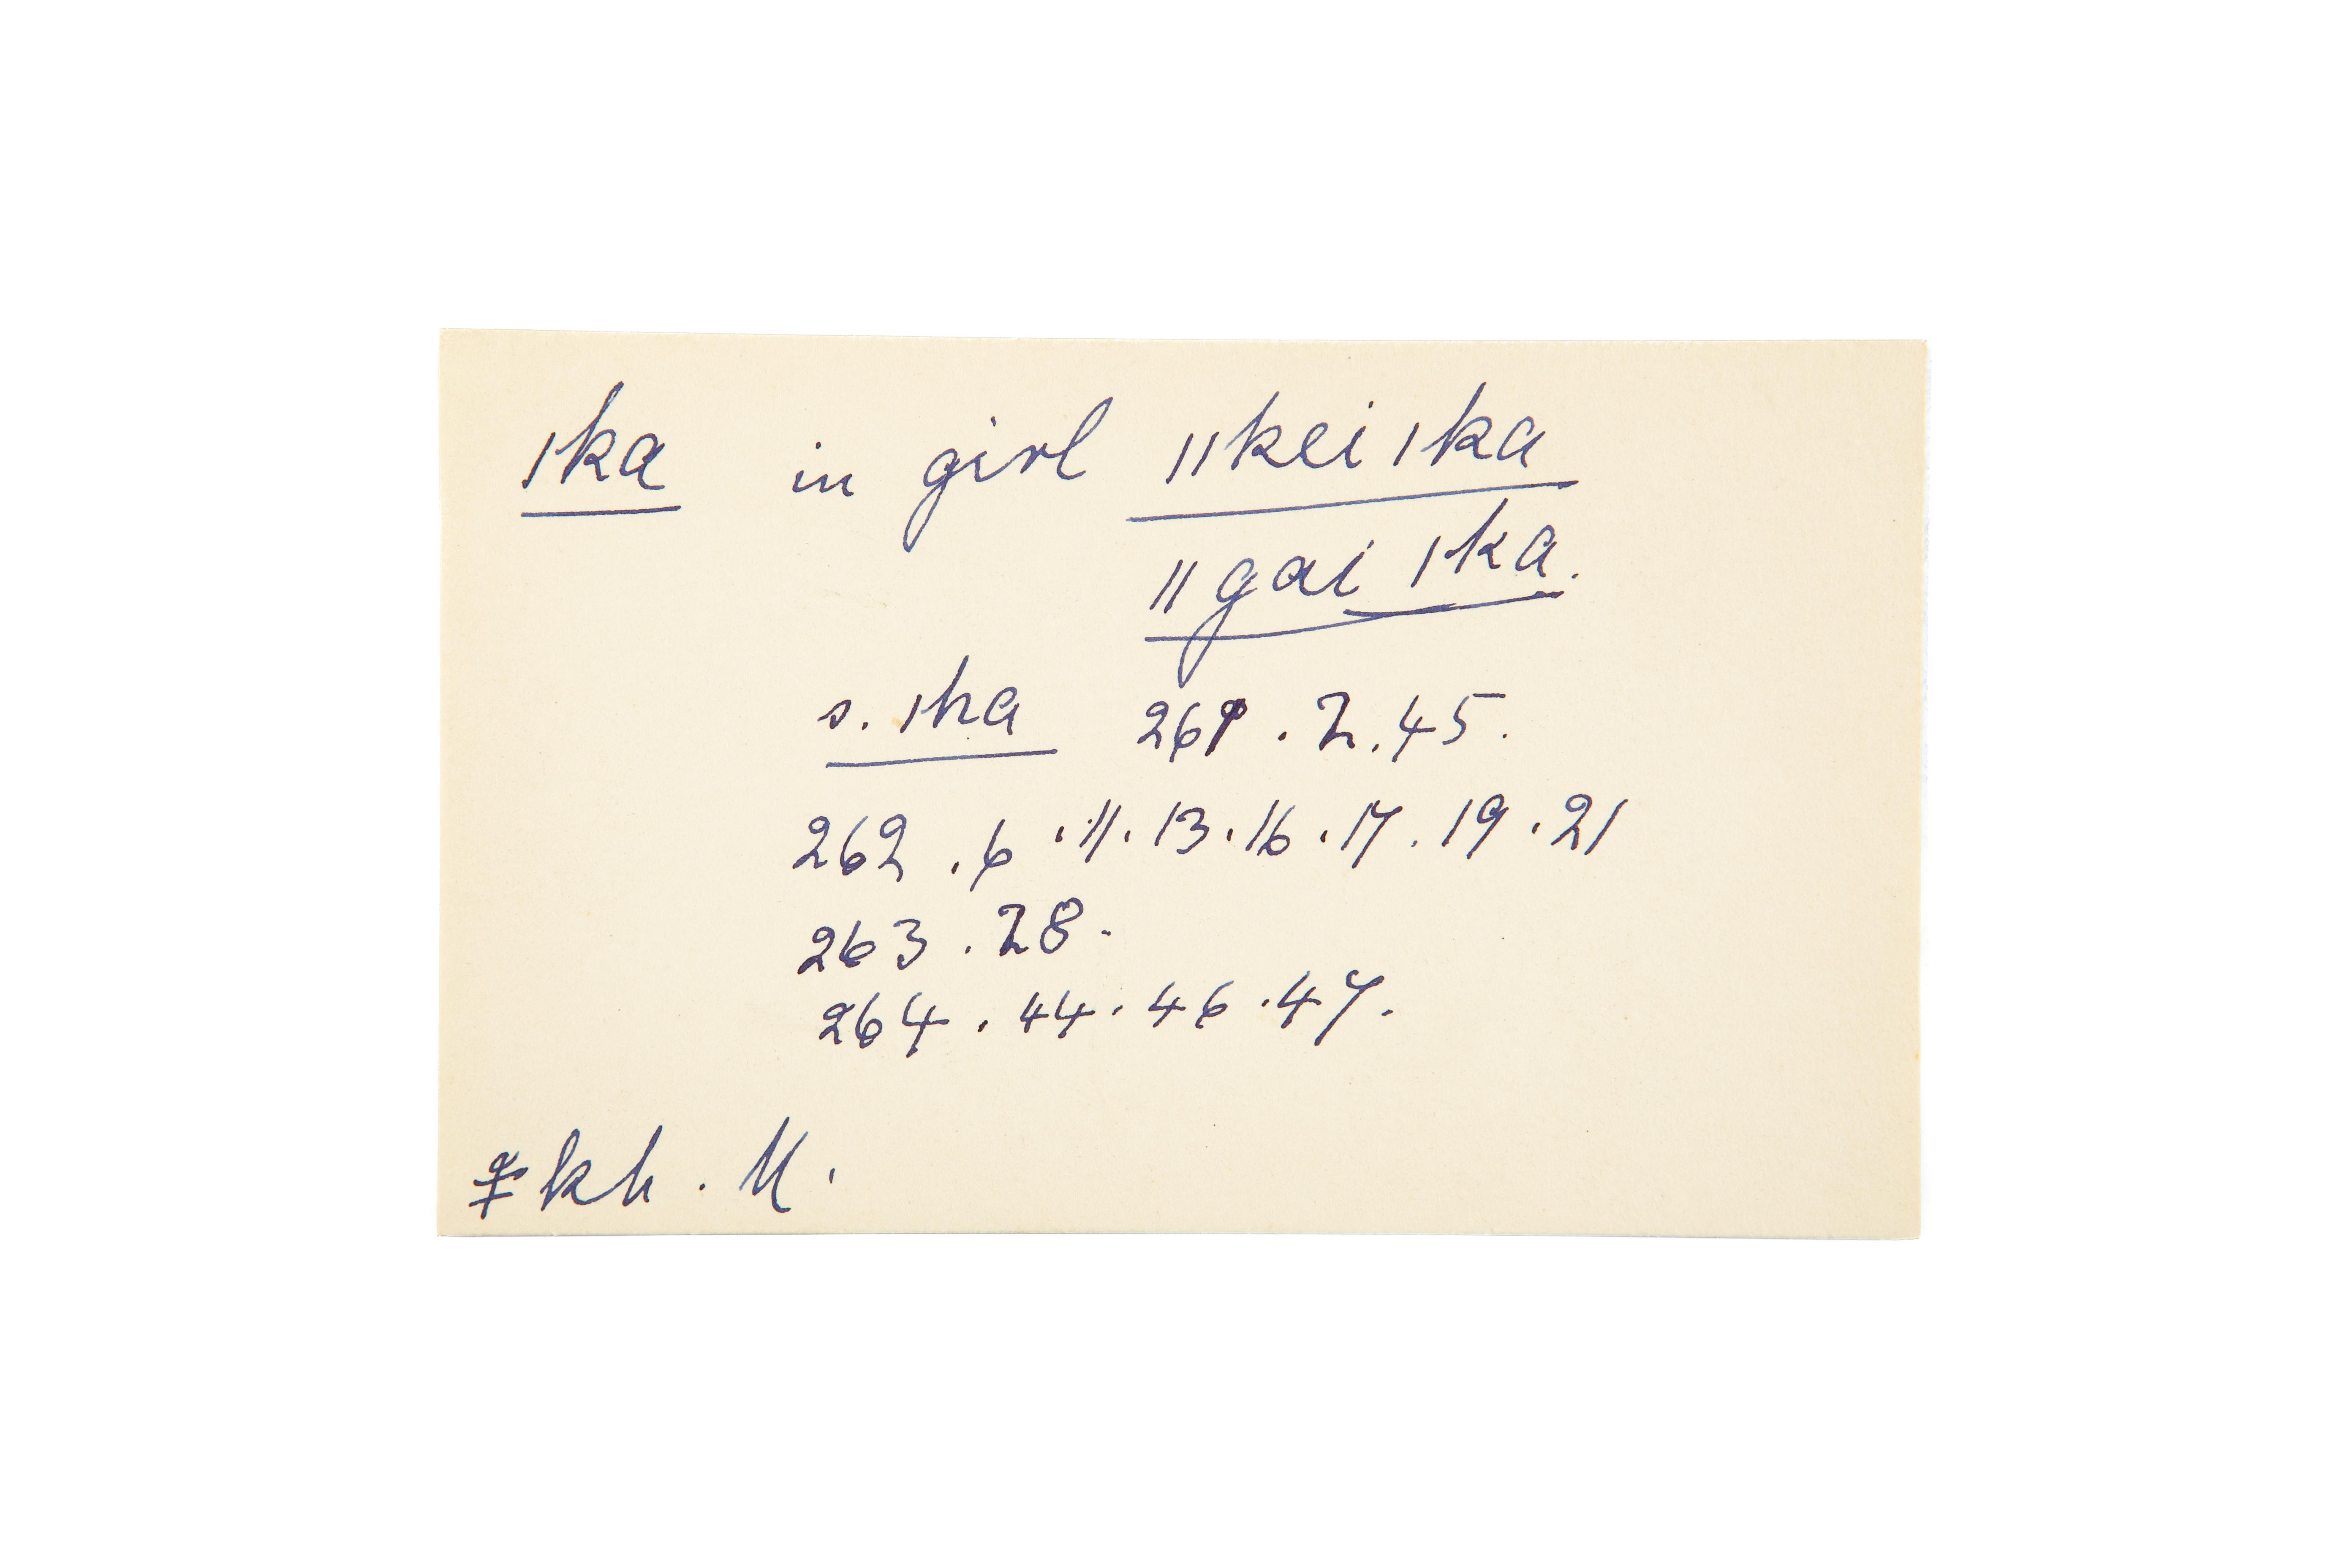 ǀka in girl ǁkei ǀka
ǁgai ǀka.
s. ǀha 261 . 2 . 45 .
262 . 6 . 11 . 13 . 16 . 17 . 19 . 21
263 . 28 .
264 . 44 . 46 . 47 .
ǂkh . M .